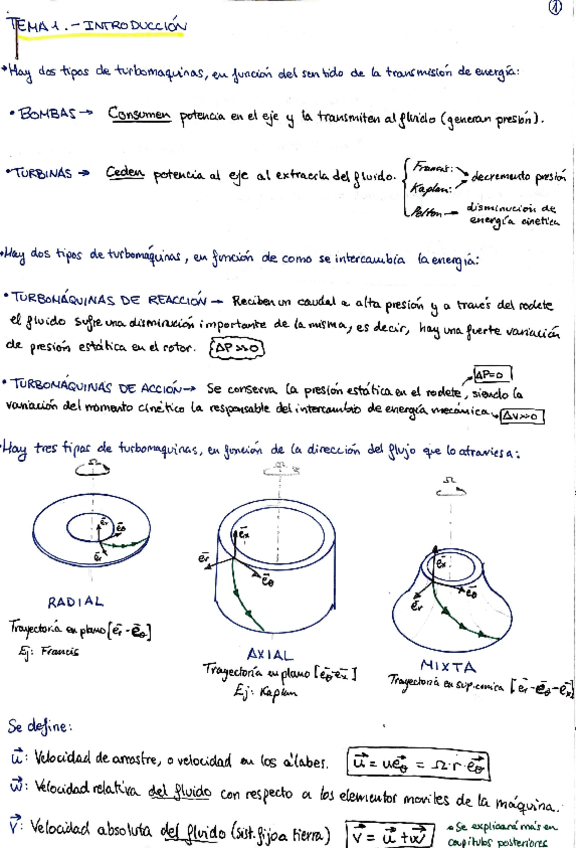 1
TEMA 1.- INTRODUCCIÓN
Hay dos tipos de turbomaquinas, en función del sentido de la transmisión de energía:
• BOMBAS → Consumen potencia en el eje y la transmiten al fluido (generan presión).
• TURBINAS → Ceden potencia al eje al extraerla del fluido.
Francis:
Kaplan:
decremento presión
Pelton → disminución de
energía cinética
Hay dos tipos de turbomáquinas, en función de como se intercambia la energía:
• TURBOMÁQUINAS DE REACCIÓN → Reciben un caudal a alta presión y a través del rodete
el fluido sufre una disminución importante de la misma, es decir, hay una fuerte variación
de presión estática en el rotor. ΔP>>0
ΔP=0
• TURBOMÁQUINAS DE ACCIÓN → Se conserva la presión estática en el rodete, siendo la
variación del momento cinético la responsable del intercambio de energía mecánica ΔV>>0
Hay tres tipos de turbomaquinas, en función de la dirección del flujo que lo atraviesa:
Ω Ω Ω
RADIAL
Trayectoria en plano [e⃗r - e⃗θ]
Ej: Francis
AXIAL
Trayectoria en plano [e⃗θ-e⃗x]
Ej: Kaplan
MIXTA
Trayectoria en sup. conica [e⃗r - e⃗θ - e⃗x]
Se define:
u⃗: Velocidad de arrastre, o velocidad en los álabes. u⃗ = u e⃗θ = Ω·r·e⃗θ
w⃗: Velocidad relativa del fluido con respecto a los elementos moviles de la máquina.
v⃗: Velocidad absoluta del fluido (sist. fijo a tierra) v⃗ = u⃗ + w⃗
• Se explicará más en
capítulos posteriores